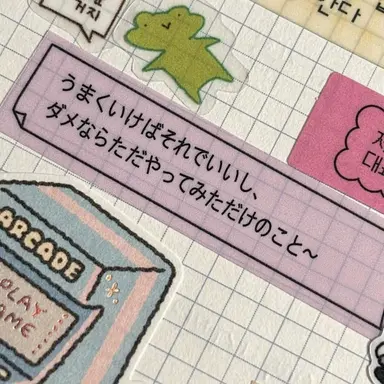 거지
うまくいけばそれでいいし、
ダメならただやってみただけのこと〜
ARCADE
PLAY
GAME